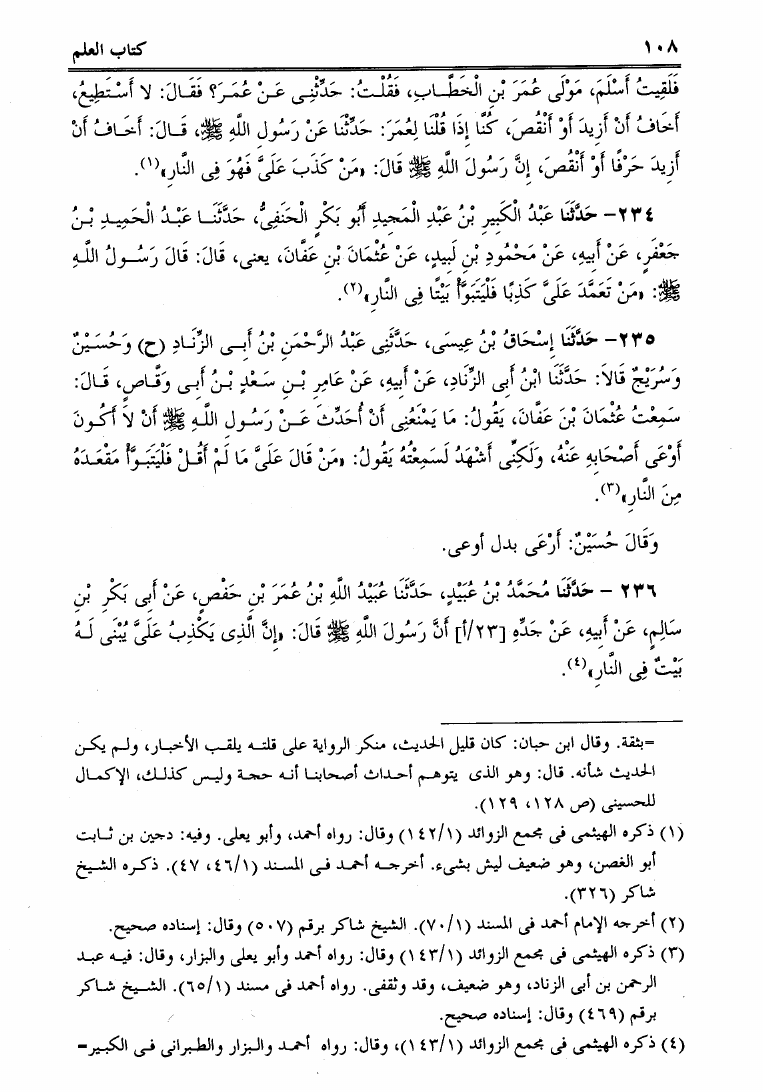 ١٠٨ كتاب العلم
فَلَقِيتُ أَسْلَمَ، مَوْلَى عُمَرَ بْنِ الْخَطَّابِ، فَقُلْتُ: حَدِّثْنِى عَنْ عُمَرَ؟ فَقَالَ: لا أَسْتَطِيعُ،
أَخَافُ أَنْ أَزِيدَ أَوْ أَنْقُصَ، كُنَّا إِذَا قُلْنَا لِعُمَرَ: حَدِّثْنَا عَنْ رَسُولِ اللَّهِ ﷺ، قَالَ: أَخَافُ أَنْ
أَزِيدَ حَرْفًا أَوْ أَنْقُصَ، إِنَّ رَسُولَ اللَّهِ ﷺ قَالَ: «مَنْ كَذَبَ عَلَىَّ فَهُوَ فِى النَّارِ»(١).
٢٣٤- حَدَّثَنَا عَبْدُ الْكَبِيرِ بْنُ عَبْدِ الْمَجِيدِ أَبُو بَكْرٍ الْحَنَفِىُّ، حَدَّثَنَا عَبْدُ الْحَمِيدِ بْنُ
جَعْفَرٍ، عَنْ أَبِيهِ، عَنْ مَحْمُودِ بْنِ لَبِيدٍ، عَنْ عُثْمَانَ بْنِ عَفَّانَ، يعنى، قَالَ: قَالَ رَسُولُ اللَّهِ
ﷺ: «مَنْ تَعَمَّدَ عَلَىَّ كَذِبًا فَلْيَتَبَوَّأْ بَيْتًا فِى النَّارِ»(٢).
٢٣٥- حَدَّثَنَا إِسْحَاقُ بْنُ عِيسَى، حَدَّثَنِى عَبْدُ الرَّحْمَنِ بْنُ أَبِى الزِّنَادِ (ح) وَحُسَيْنٌ
وَسُرَيْجٌ قَالاَ: حَدَّثَنَا ابْنُ أَبِى الزِّنَادِ، عَنْ أَبِيهِ، عَنْ عَامِرِ بْنِ سَعْدِ بْنُ أَبِى وَقَّاصٍ، قَالَ:
سَمِعْتُ عُثْمَانَ بْنَ عَفَّانَ، يَقُولُ: مَا يَمْنَعُنِى أَنْ أُحَدِّثَ عَنْ رَسُولِ اللَّهِ ﷺ أَنْ لاَ أَكُونَ
أَوْعَى أَصْحَابِهِ عَنْهُ، وَلَكِنِّى أَشْهَدُ لَسَمِعْتُهُ يَقُولُ: «مَنْ قَالَ عَلَىَّ مَا لَمْ أَقُلْ فَلْيَتَبَوَّأْ مَقْعَدَهُ
مِنَ النَّارِ»(٣).
وَقَالَ حُسَيْنٌ: أَرْعَى بدل أوعى.
٢٣٦ - حَدَّثَنَا مُحَمَّدُ بْنُ عُبَيْدٍ، حَدَّثَنَا عُبَيْدُ اللَّهِ بْنُ عُمَرَ بْنِ حَفْصٍ، عَنْ أَبِى بَكْرِ بْنِ
سَالِمٍ، عَنْ أَبِيهِ، عَنْ جَدِّهِ [٢٣/أ] أَنَّ رَسُولَ اللَّهِ ﷺ قَالَ: «إِنَّ الَّذِى يَكْذِبُ عَلَىَّ يُبْنَى لَهُ
بَيْتٌ فِى النَّارِ»(٤).
=بثقة. وقال ابن حبان: كان قليل الحديث، منكر الرواية على قلته يلقب الأخبار، ولم يكن
الحديث شأنه. قال: وهو الذى يتوهم أحداث أصحابنا أنه حجة وليس كذلك، الإكمال
للحسينى (ص ١٢٨، ١٢٩).
(١) ذكره الهيثمى فى مجمع الزوائد (١٤٢/١) وقال: رواه أحمد، وأبو يعلى. وفيه: دجين بن ثابت
أبو الغصن، وهو ضعيف ليش بشىء. أخرجه أحمد فى المسند (٤٦/١، ٤٧). ذكره الشيخ
شاكر (٣٢٦).
(٢) أخرجه الإمام أحمد فى المسند (٧٠/١). الشيخ شاكر برقم (٥٠٧) وقال: إسناده صحيح.
(٣) ذكره الهيثمى فى مجمع الزوائد (١٤٣/١) وقال: رواه أحمد وأبو يعلى والبزار، وقال: فيه عبد
الرحمن بن أبى الزناد، وهو ضعيف، وقد وثقفى. رواه أحمد فى مسند (٦٥/١). الشيخ شاكر
برقم (٤٦٩) وقال: إسناده صحيح.
(٤) ذكره الهيثمى فى مجمع الزوائد (١٤٣/١)، وقال: رواه أحمد والبزار والطبرانى فى الكبير=